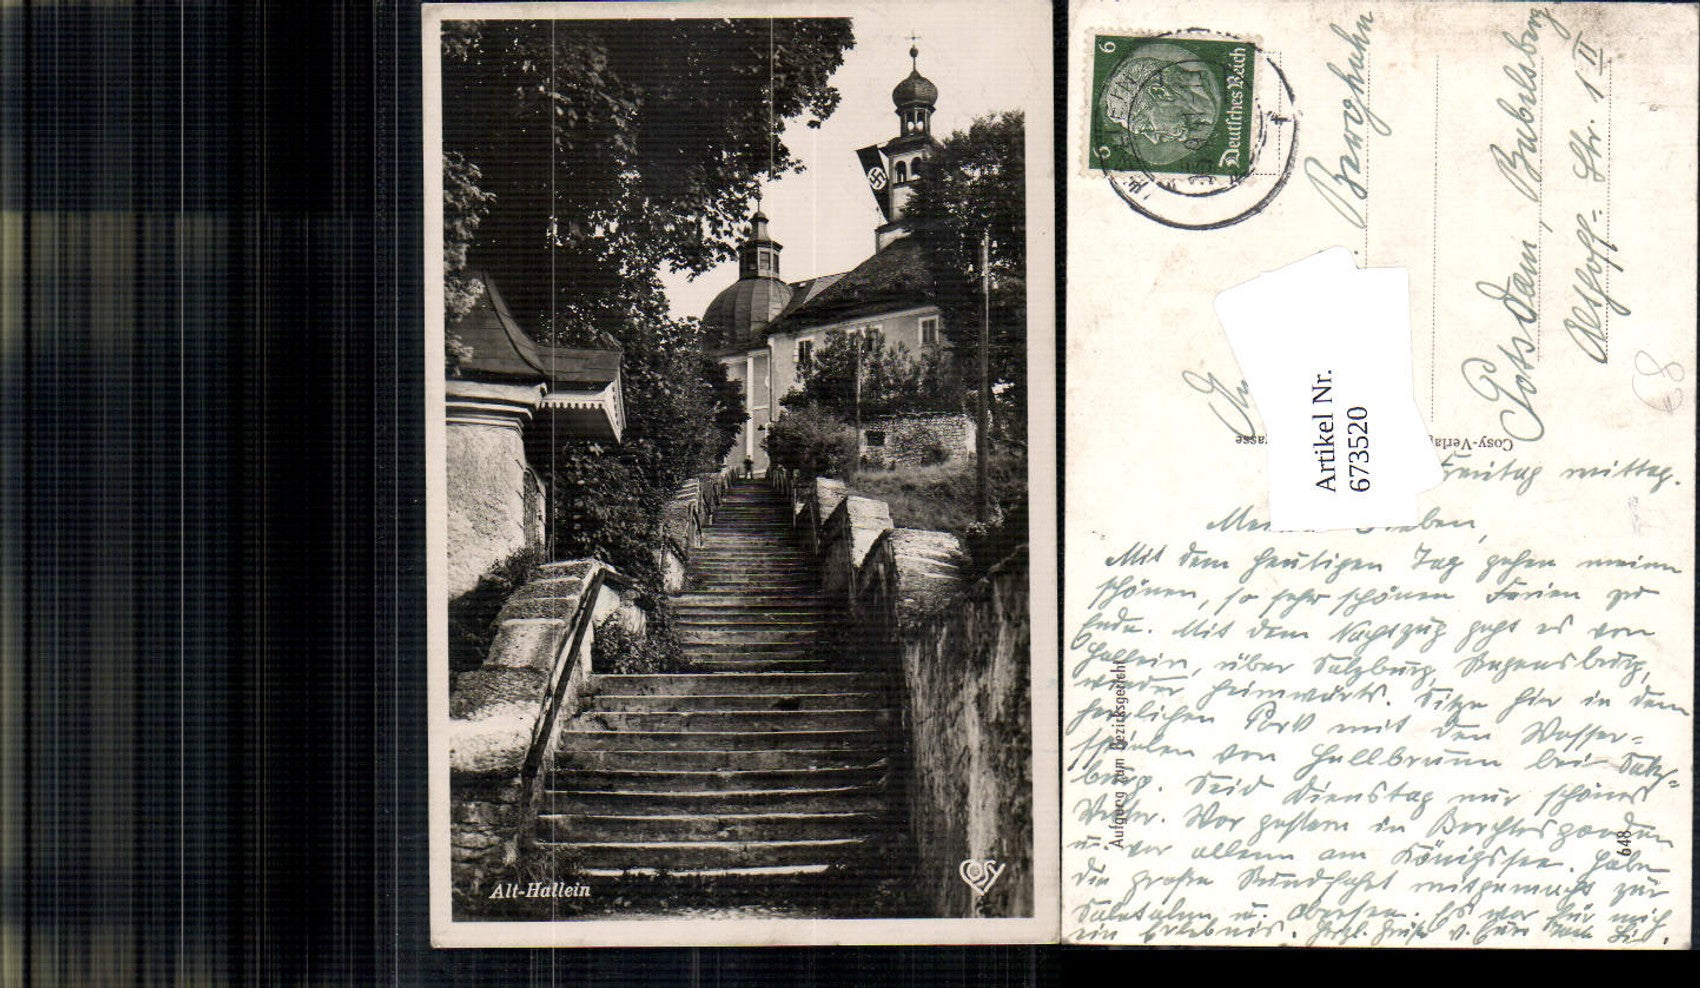 Alt-Hallein
COSY
6
6
Deutsches Reich
HALLEIN
Artikel Nr.
673520
Potsdam, Babelsberg
Str. 1 II
68
Cosy-Verlag
gasse
Aufgang zum Bezirksgericht
648
Freitag mittag.
Lieben,
Mit dem heutigen Tag gehen meine
schönen, so sehr schönen Ferien zu
Ende. Mit dem Nachtzug geht es von
Hallein, über Salzburg, Regensburg,
wieder heimwärts. Sitze hier in dem
herrlichen Park mit den Wasser-
spielen von Hellbrunn bei Salz-
burg. Seid Dienstag nur schönes
Wetter. War gestern in Berchtesgaden
u. vor allem am Königssee. Habe
die große Rundfahrt mitgemacht zur
Saletalm u. Obersee. Es war für mich
ein Erlebnis. Herzl. Grüße v. Eurer